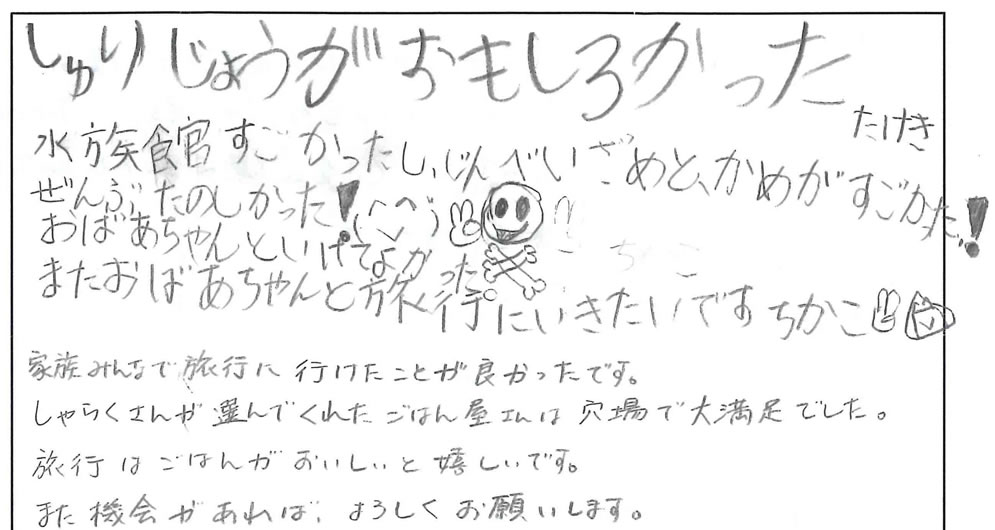 しゅりじょうがおもしろかった
たけき
水族館すごかったし、じんべいざめと、かめがすごかった!
ぜんぶたのしかった!(^^)
おばあちゃんといけてよかった
またおばあちゃんと旅行にいきたいです ちかこ
家族みんなで旅行に行けたことが良かったです。
しゃらくさんが選んでくれたごはん屋さんは穴場で大満足でした。
旅行はごはんがおいしいと嬉しいです。
また機会があれば、よろしくお願いします。